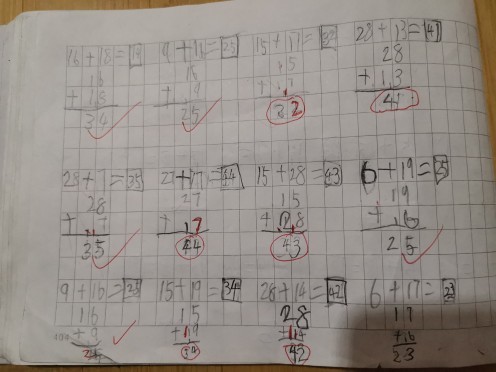 16+18= 9+16=25 15+17=32 28+13=41
16 16 15 28
+18 +9 +17 +13
34 25 32 41
28+7=35 27+17=44 15+28=43 6+19=25
28 27 15 19
+7 +17 +28 +6
35 44 43 25
9+16=25 15+19=34 28+14=42 6+17=23
16 15 28 17
+9 +19 +14 +6
25 34 42 23